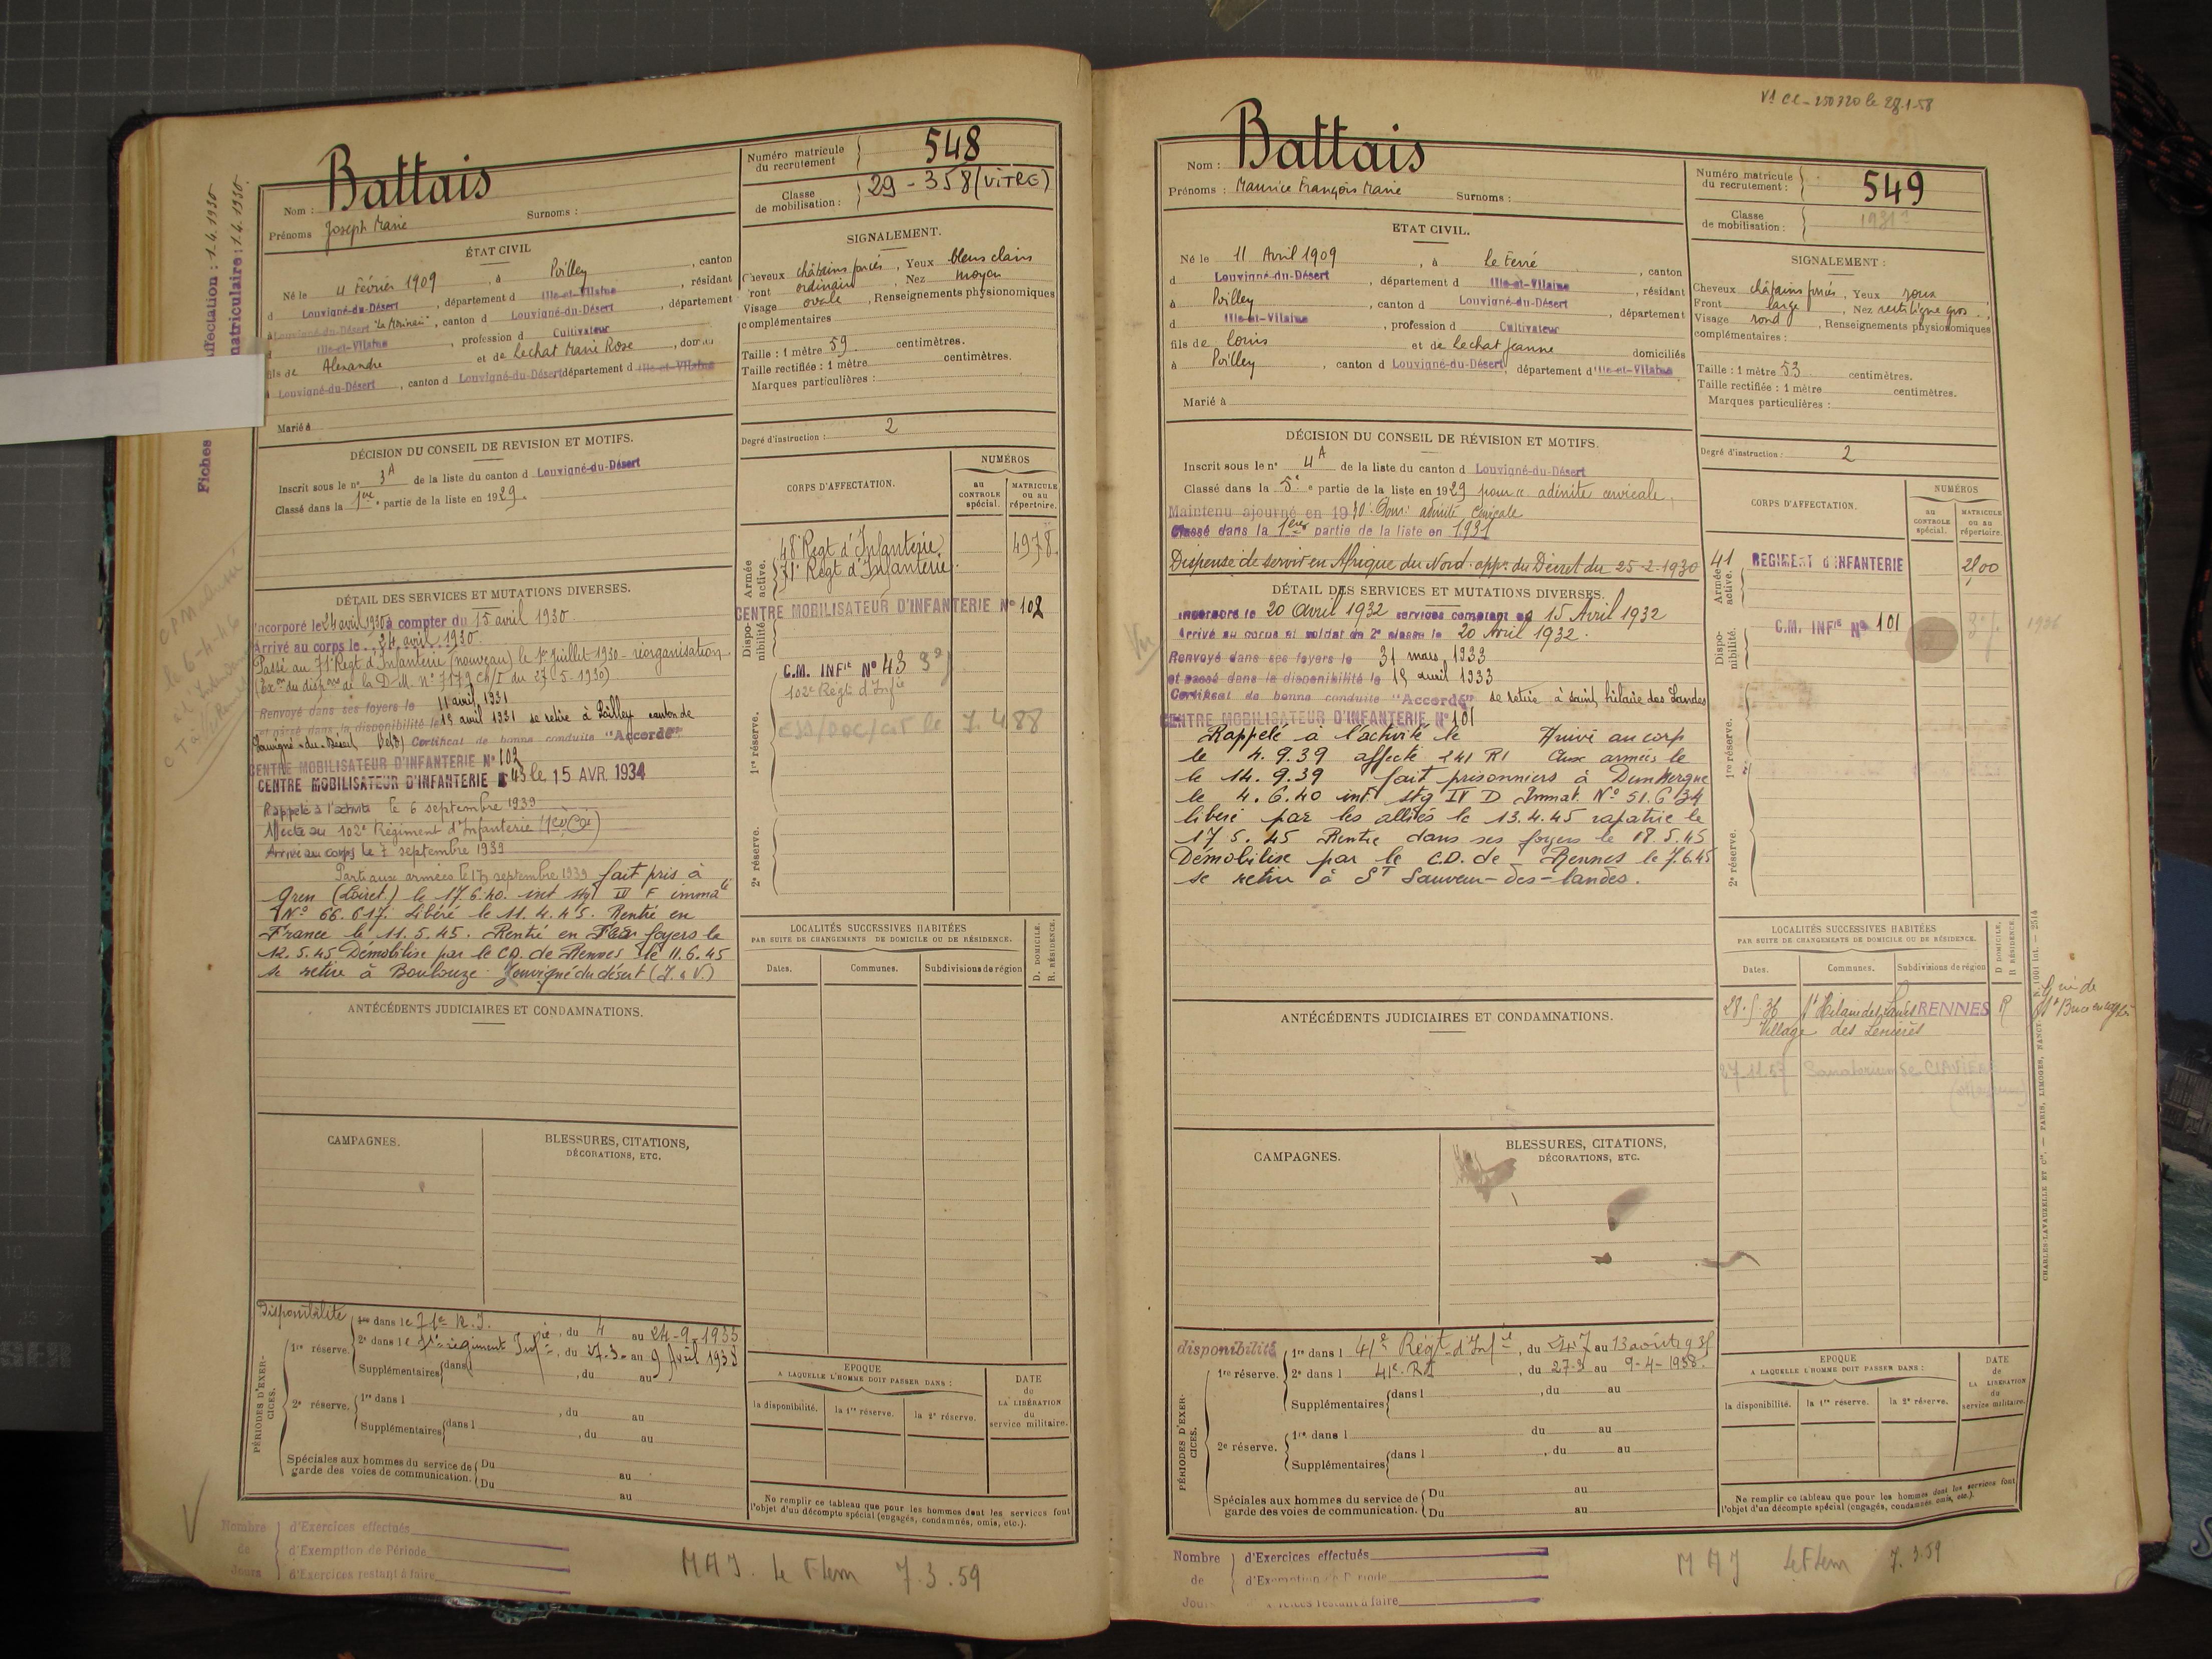 Fiches
affectation : 1-4-1930
matriculaire : 1.4.1930.
Nom : Battais
Prénoms Joseph Marie Surnoms :
Numéro matricule du recrutement 548
Classe de mobilisation : 29 - 358 (VITRE)
ÉTAT CIVIL
Né le 4 Février 1909, à Poilley, canton
d Louvigné-du-Désert, département d Ille-et-Vilaine, résidant
à Louvigné-du-Désert, canton d Louvigné-du-Désert, département
d Ille-et-Vilaine, profession d Cultivateur
fils de Alexandre et de Lechat Marie Rose
à Louvigné-du-Désert, canton d Louvigné-du-Désert département d Ille-et-Vilaine
Marié à
SIGNALEMENT.
Cheveux châtains foncés, Yeux bleus clairs
ront ordinaire, Nez moyen
Visage ovale, Renseignements physionomiques
complémentaires
Taille : 1 mètre 59 centimètres.
Taille rectifiée : 1 mètre centimètres.
Marques particulières :
Degré d'instruction : 2
DÉCISION DU CONSEIL DE REVISION ET MOTIFS.
Inscrit sous le n° 3A de la liste du canton d Louvigné-du-Désert
Classé dans la 1ère partie de la liste en 1929.
DÉTAIL DES SERVICES ET MUTATIONS DIVERSES.
Incorporé le 24 avril 1930 à compter du 15 avril 1930
Arrivé au corps le 24 avril 1930.
Passé au 71e Régt d'Infanterie (nouveau) le 1er Juillet 1930 - réorganisation
(Exon du dispve de la D.M. N° 7179 du 27-5-1930)
Renvoyé dans ses foyers le 11 avril 1931
et passé dans la disponibilité le 15 avril 1931 se retire à Poilley canton de
Louvigné-du-Désert Certificat de bonne conduite "Accordé"
CENTRE MOBILISATEUR D'INFANTERIE N° 102
CENTRE MOBILISATEUR D'INFANTERIE 43 le 15 AVR. 1934
Rappelé à l'activité le 6 septembre 1939
Affecté au 102e Régiment d'Infanterie
Arrivé au corps le 7 septembre 1939
Parti aux armées le 17 septembre 1939 fait pris à
Gren (Loiret.) le 17.6.40. int stg IV F immale
N° 66.617. Libéré le 11.4.45. Rentré en
France le 11.5.45. Rentré en foyers le
12.5.45 Démobilisé par le C.D. de Rennes le 11.6.45
se retire à Boulouze Louvigné du désert (I. & V.)
CORPS D'AFFECTATION.
NUMÉROS
au CONTROLE spécial.
MATRICULE ou au répertoire.
Armée active.
48e Régt d'Infanterie 4978
71e Régt d'Infanterie
Disponibilité.
CENTRE MOBILISATEUR D'INFANTERIE N° 102
C.M. INFIE N° 43
102e Régt d'Infie
1re réserve.
2e réserve.
LOCALITÉS SUCCESSIVES HABITÉES
PAR SUITE DE CHANGEMENTS DE DOMICILE OU DE RÉSIDENCE.
Dates. Communes. Subdivisions de région
D. DOMICILE.
R. RÉSIDENCE.
ANTÉCÉDENTS JUDICIAIRES ET CONDAMNATIONS.
CAMPAGNES.
BLESSURES, CITATIONS,
DÉCORATIONS, ETC.
PÉRIODES D'EXERCICES.
Disponibilité
1re réserve.
1re dans le 71e R.I., du 4 au 24-9-1935
2e dans le régiment Infie, du 27.3 au 9 Avril 1938
Supplémentaires dans l , du au
2e réserve.
1re dans l , du au
Supplémentaires dans l , du au
Spéciales aux hommes du service de garde des voies de communication. Du au
Du au
EPOQUE
A LAQUELLE L'HOMME DOIT PASSER DANS :
la disponibilité. la 1re réserve. la 2e réserve.
DATE de LA LIBÉRATION du service militaire.
Ne remplir ce tableau que pour les hommes dont les services font
l'objet d'un décompte spécial (engagés, condamnés, omis, etc.).
Nombre de Jours
d'Exercices effectués
d'Exemption de Période
d'Exercices restant à faire
MAJ. Le Flem 7.3.59
Nom : Battais
Prénoms : Maurice François Marie Surnoms :
Numéro matricule du recrutement : 549
Classe de mobilisation :
ETAT CIVIL.
Né le 11 Avril 1909, à Le Ferré, canton
d Louvigné-du-Désert, département d Ille-et-Vilaine, résidant
à Poilley, canton d Louvigné-du-Désert, département
d Ille-et-Vilaine, profession d Cultivateur
fils de Louis et de Lechat Jeanne domiciliés
à Poilley, canton d Louvigné-du-Désert, département d'Ille-et-Vilaine
Marié à
SIGNALEMENT :
Cheveux châtains foncés, Yeux roux
Front large, Nez rectiligne gros
Visage rond, Renseignements physionomiques
complémentaires :
Taille : 1 mètre 53 centimètres.
Taille rectifiée : 1 mètre centimètres.
Marques particulières :
Degré d'instruction : 2
DÉCISION DU CONSEIL DE RÉVISION ET MOTIFS.
Inscrit sous le n° 4A de la liste du canton d Louvigné-du-Désert
Classé dans la 5e partie de la liste en 1929 pour adénite cervicale.
Maintenu ajourné en 1930 : Pour : adénite Cervicale
Classé dans la 1ère partie de la liste en 1931
Dispensé de servir en Afrique du Nord. appn du Décret du 25-2-1930
DÉTAIL DES SERVICES ET MUTATIONS DIVERSES.
Incorporé le 20 Avril 1932 services comptant du 15 Avril 1932
Arrivé au corps et soldat de 2e classe le 20 Avril 1932.
Renvoyé dans ses foyers le 31 mars 1933
et passé dans la disponibilité le 15 avril 1933
Certificat de bonne conduite "Accordé" se retire à Saint hilaire des Landes
CENTRE MOBILISATEUR D'INFANTERIE N° 101
Rappelé à l'activité le Arrivé au corp
le 4.9.39 affecté 241 RI Aux armées le
le 14.9.39 fait prisonniers à Dunkergue
le 4.6.40 int. stg IV D Immat. N° 51.634
libéré par les alliés le 13.4.45 rapatrié le
17.5.45 Rentré dans ses foyers le 18.5.45
Démobilisé par le C.D. de Rennes le 7.6.45
se retire à St Sauveur-des-landes.
CORPS D'AFFECTATION.
NUMÉROS
au CONTROLE spécial.
MATRICULE ou au répertoire.
Armée active.
41 REGIMENT D'INFANTERIE
Disponibilité.
C.M. INFIE N° 101
1936
1re réserve.
2e réserve.
LOCALITÉS SUCCESSIVES HABITÉES
PAR SUITE DE CHANGEMENTS DE DOMICILE OU DE RÉSIDENCE.
Dates. Communes. Subdivisions de région
D. DOMICILE.
R. RÉSIDENCE.
28.5.36 St Hilaire des Landes RENNES R
Village des
27.11.57 Sanatorium de CLAVIERE
ANTÉCÉDENTS JUDICIAIRES ET CONDAMNATIONS.
CAMPAGNES.
BLESSURES, CITATIONS,
DÉCORATIONS, ETC.
PÉRIODES D'EXERCICES.
disponibilité
1re réserve.
1re dans l 41e Régt d'Infie, du au 13 août 1935
2e dans l 41e RI, du 27-3 au 9-4-1938.
Supplémentaires dans l , du au
2e réserve.
1re dans l du au
Supplémentaires dans l , du au
Spéciales aux hommes du service de garde des voies de communication. Du au
Du au
EPOQUE
A LAQUELLE L'HOMME DOIT PASSER DANS :
la disponibilité. la 1re réserve. la 2e réserve.
DATE de LA LIBÉRATION du service militaire.
Ne remplir ce tableau que pour les hommes dont les services font
l'objet d'un décompte spécial (engagés, condamnés, omis, etc.).
Nombre de Jours
d'Exercices effectués
d'Exemption de Période
restant à faire
MAJ Le Flem 7.3.59
CHARLES-LAVAUZELLE ET Cie. — PARIS, LIMOGES, NANCY.